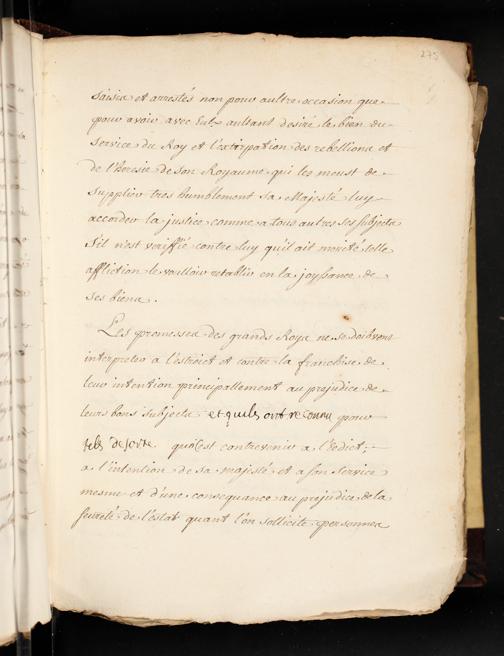 275
saisis et arrestés non pour aultre occasion que
pour avoir avec Eulx aultant desiré le bien du
service du Roy et l'extirpation des rebellions et
de l'heresie de son Royaume, qui les meust de
supplier tres humblement sa Majesté luy
accorder la justice comme a tous autres ses subjects
S'il n'est veriffié contre luy qu'il ait merité telle
affliction le voulloir retablir en la joyssance de
ses biens.
Les promesses des grands Roys ne se doibvent
interpreter a l'estroict et contre la franchise de
leur intention principallement au prejudice de
leurs bons subjects et quils ont reconnu pour
tels de sorte quoi c'est contrevenir a l'Edict,
a l'intention de sa majesté et a son service
mesme et d'une consequance au prejudice de la
seureté de l'estat quant l'on sollicite personnes